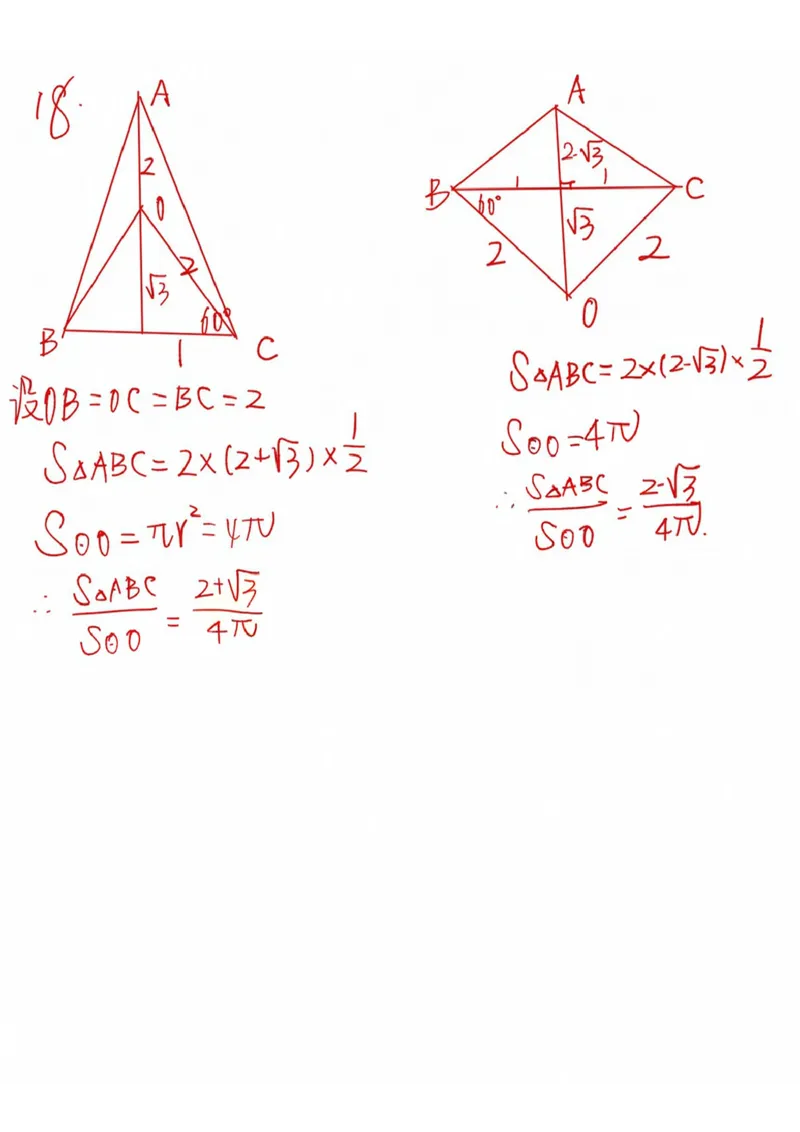 18.
A
2
O
2
√3
60°
B
1
C
设OB=OC=BC=2
S△ABC=2×(2+√3)×1/2
S⊙O=πr²=4π
∴ S△ABC/S⊙O = 2+√3/4π
A
2-√3
1
1
B
C
60°
√3
2
2
O
S△ABC=2×(2-√3)×1/2
S⊙O=4π
∴ S△ABC/S⊙O = 2-√3/4π.